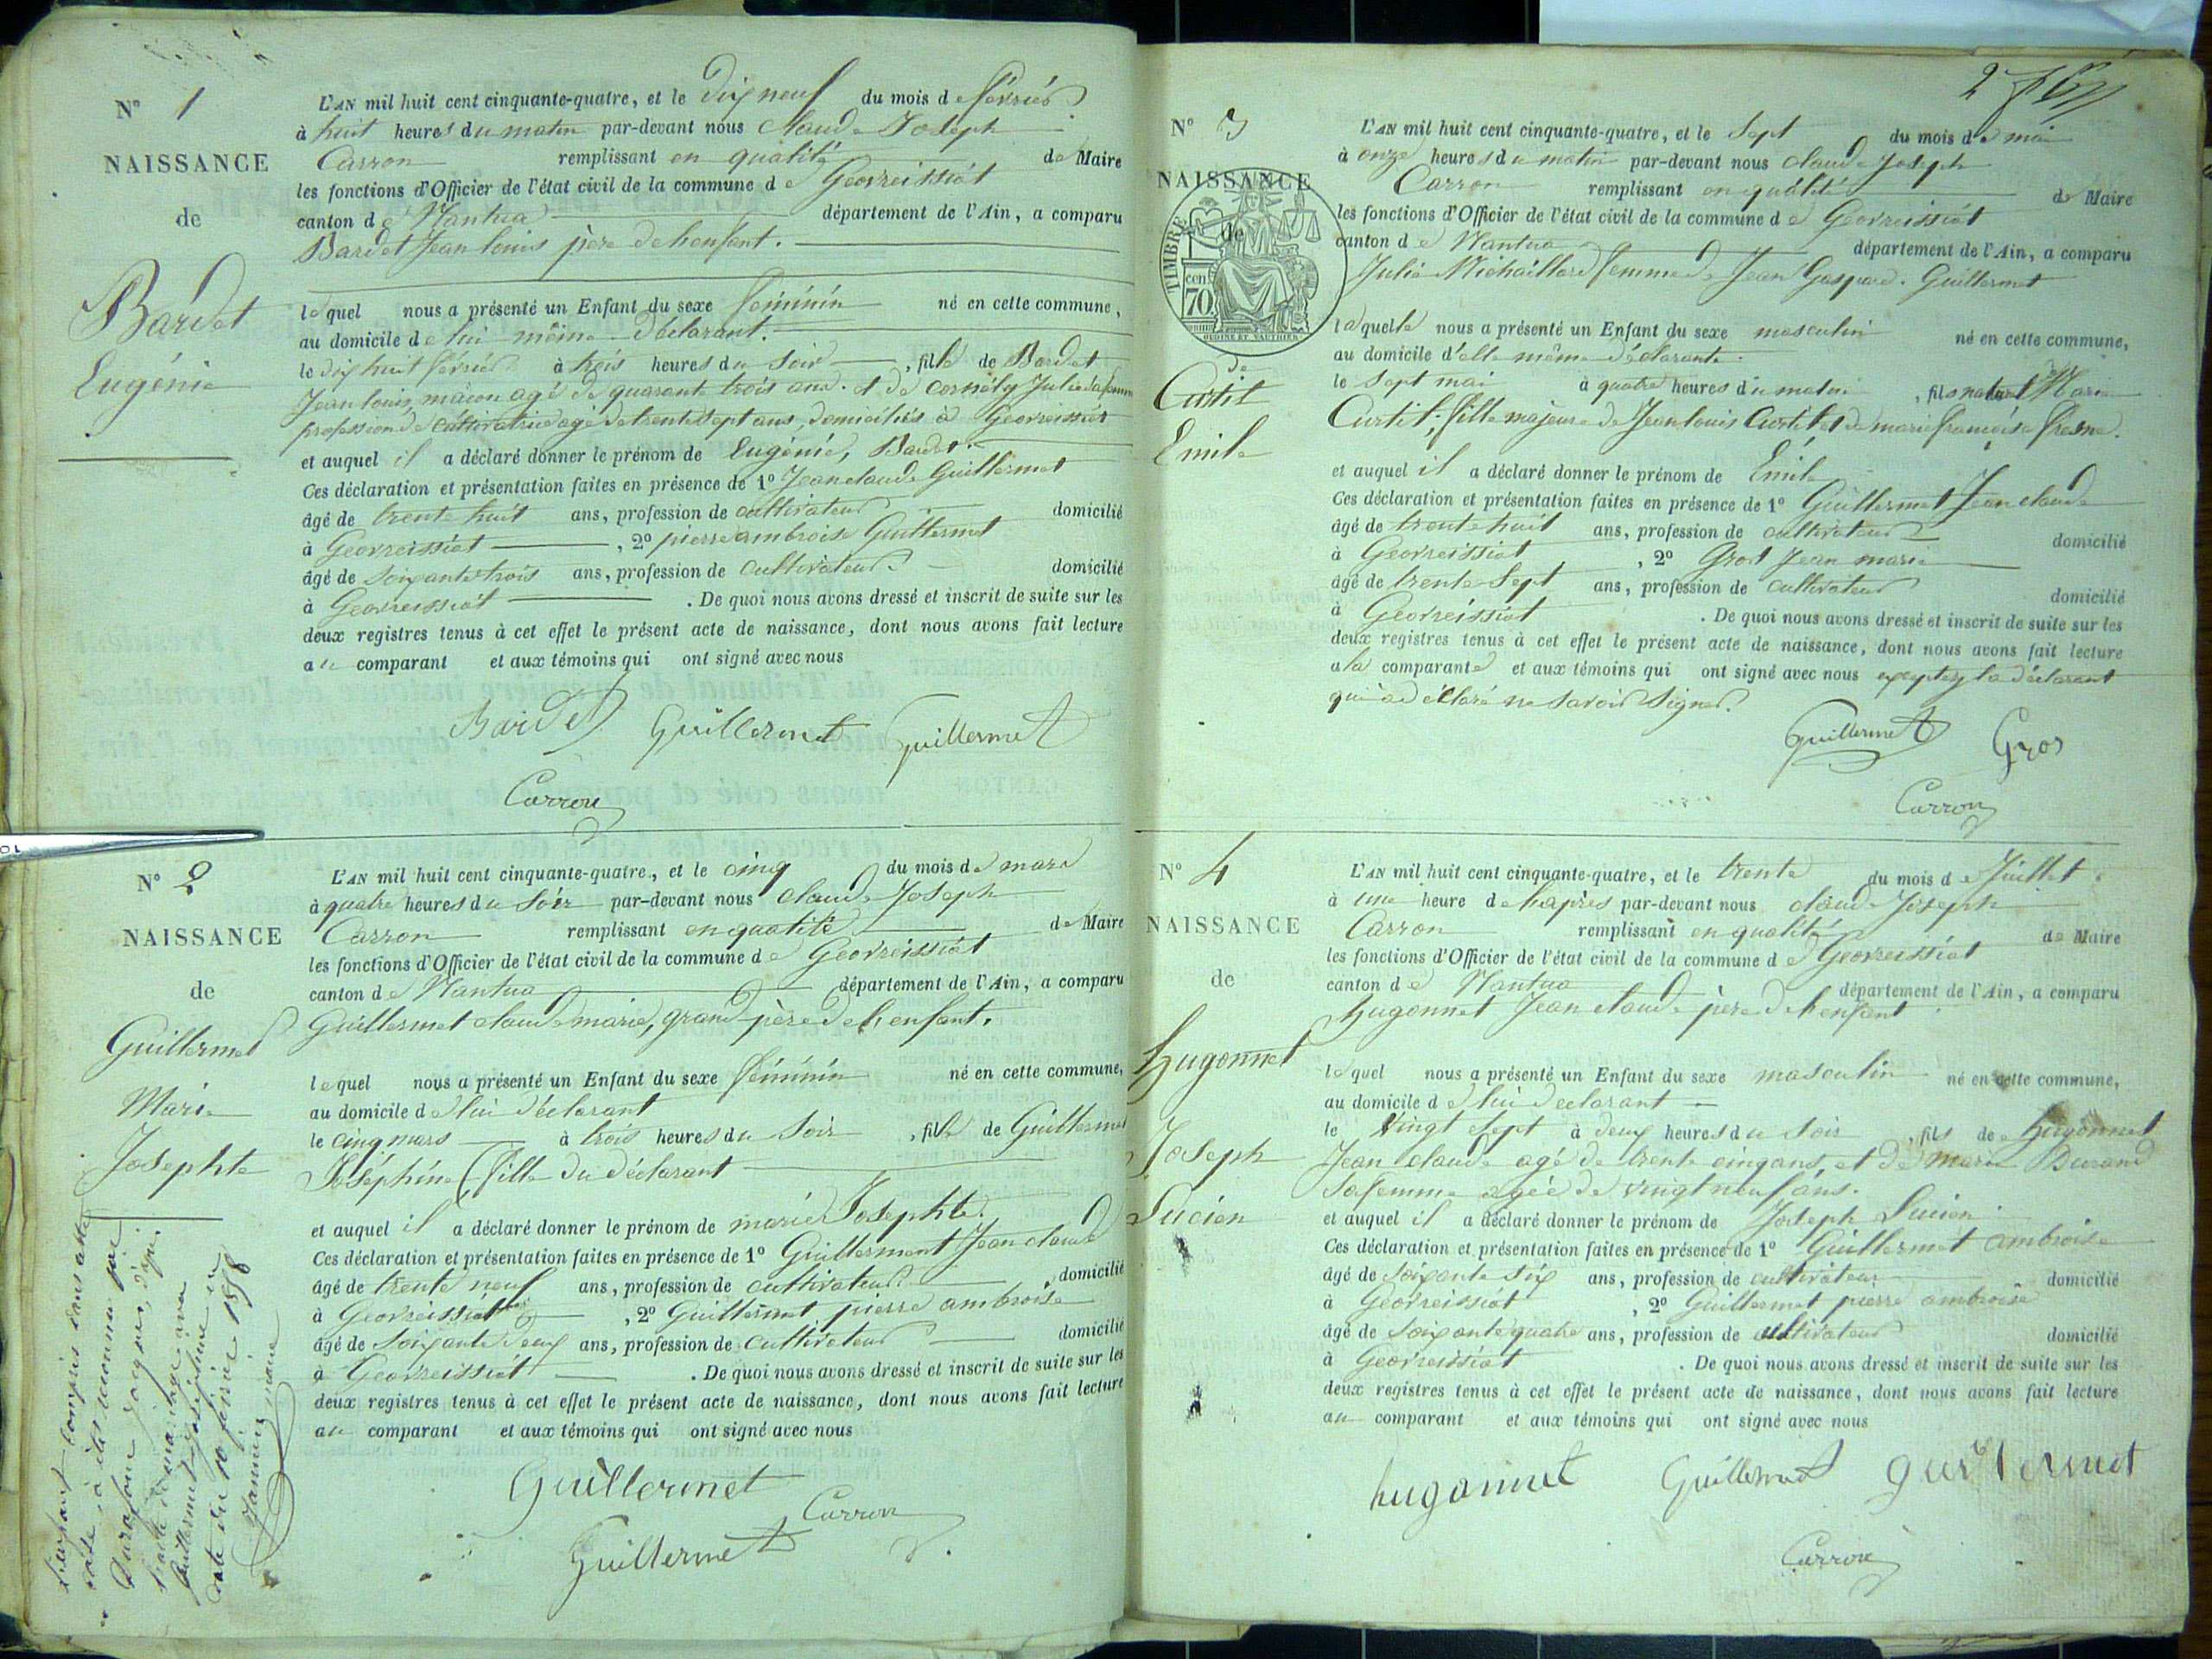 N° 1
NAISSANCE
de
Bardet
Eugénie
L'AN mil huit cent cinquante-quatre, et le dix neuf du mois de février
à huit heures du matin par-devant nous Claude Joseph
Carron remplissant en qualité de Maire
les fonctions d'Officier de l'état civil de la commune de Géovreissiat
canton de Nantua département de l'Ain, a comparu
Bardet Jean louis père de l'enfant.
lequel nous a présenté un Enfant du sexe féminin né en cette commune,
au domicile de lui même déclarant.
le dix huit février à trois heures du soir, fille de Bardet
Jean louis, maçon agé de quarante trois ans. et de Julie sa femme
profession de cultivatrice agé de trente sept ans, domiciliés à Géovreissiat
et auquel il a déclaré donner le prénom de Eugénie, Bardet.
Ces déclaration et présentation faites en présence de 1° Jean claude Guillermet
âgé de trente huit ans, profession de cultivateur domicilié
à Géovreissiat, 2° pierre ambroise Guillermet
âgé de soixante trois ans, profession de cultivateur domicilié
à Géovreissiat. De quoi nous avons dressé et inscrit de suite sur les
deux registres tenus à cet effet le présent acte de naissance, dont nous avons fait lecture
au comparant et aux témoins qui ont signé avec nous
Bardet Guillermet Guillermet
Carron
N° 2
NAISSANCE
de
Guillermet
Marie
Josephte
L'AN mil huit cent cinquante-quatre, et le cinq du mois de mars
à quatre heures du soir par-devant nous Claude Joseph
Carron remplissant en qualité de Maire
les fonctions d'Officier de l'état civil de la commune de Géovreissiat
canton de Nantua département de l'Ain, a comparu
Guillermet claude marie, grand père de l'enfant.
lequel nous a présenté un Enfant du sexe féminin né en cette commune,
au domicile de lui déclarant
le cinq mars à trois heures du soir, fille de Guillermet
Joséphine fille du déclarant
et auquel il a déclaré donner le prénom de marie Josephte.
Ces déclaration et présentation faites en présence de 1° Guillerment Jean claude
âgé de trente neuf ans, profession de cultivateur domicilié
à Géovreissiat, 2° Guillermet pierre ambroise
âgé de soixante deux ans, profession de cultivateur domicilié
à Géovreissiat. De quoi nous avons dressé et inscrit de suite sur les
deux registres tenus à cet effet le présent acte de naissance, dont nous avons fait lecture
au comparant et aux témoins qui ont signé avec nous
Guillermet
Carron
Guillermet
L'enfant compris dans acte
à été reconnu par
jacques, d'après
l'acte de mariage avec
Guillermet joséphine en
date du 10 février 1858
maire
2
N° 3
NAISSANCE
de
TIMBRE
cen
70
de
Curtil
Emile
L'AN mil huit cent cinquante-quatre, et le sept du mois de mai
à onze heures du matin par-devant nous claude Joseph
Carron remplissant en qualité de Maire
les fonctions d'Officier de l'état civil de la commune de Géovreissiat
canton de Nantua département de l'Ain, a comparu
Julie Michaillard femme de Jean Gaspard Guillermet
laquelle nous a présenté un Enfant du sexe masculin né en cette commune,
au domicile d'elle même déclarante.
le sept mai à quatre heures du matin, fils naturel Marie
Curtil; fille majeure de Jean louis Curtil et de marie françoise fresne.
et auquel il a déclaré donner le prénom de Emile
Ces déclaration et présentation faites en présence de 1° Guillermet Jean claude
âgé de trente huit ans, profession de cultivateur domicilié
à Géovreissiat, 2° Gros Jean marie
âgé de trente sept ans, profession de cultivateur domicilié
à Géovreissiat. De quoi nous avons dressé et inscrit de suite sur les
deux registres tenus à cet effet le présent acte de naissance, dont nous avons fait lecture
à la comparante et aux témoins qui ont signé avec nous exceptez la déclarant
qui a déclaré ne savoir signer.
Guillermet Gros
Carron
N° 4
NAISSANCE
de
hugonnet
Joseph
Lucien
L'AN mil huit cent cinquante-quatre, et le trente du mois de Juillet
à une heure de l'après par-devant nous claude Joseph
Carron remplissant en qualité de Maire
les fonctions d'Officier de l'état civil de la commune de Géovreissiat
canton de Nantua département de l'Ain, a comparu
hugonnet Jean claude père de l'enfant
lequel nous a présenté un Enfant du sexe masculin né en cette commune,
au domicile de lui declarant
le vingt sept à deux heures du soir, fils de hugonnet
Jean claude agé de trente cinq ans, et de marie Durand
sa femme agée de vingt neuf ans.
et auquel il a déclaré donner le prénom de Joseph Lucien
Ces déclaration et présentation faites en présence de 1° Guillermet ambroise
âgé de soixante six ans, profession de cultivateur domicilié
à Géovreissiat, 2° Guillermet pierre ambroise
âgé de soixante quatre ans, profession de cultivateur domicilié
à Géovreissiat. De quoi nous avons dressé et inscrit de suite sur les
deux registres tenus à cet effet le présent acte de naissance, dont nous avons fait lecture
au comparant et aux témoins qui ont signé avec nous
hugonnet Guillermet guillermet
Carron